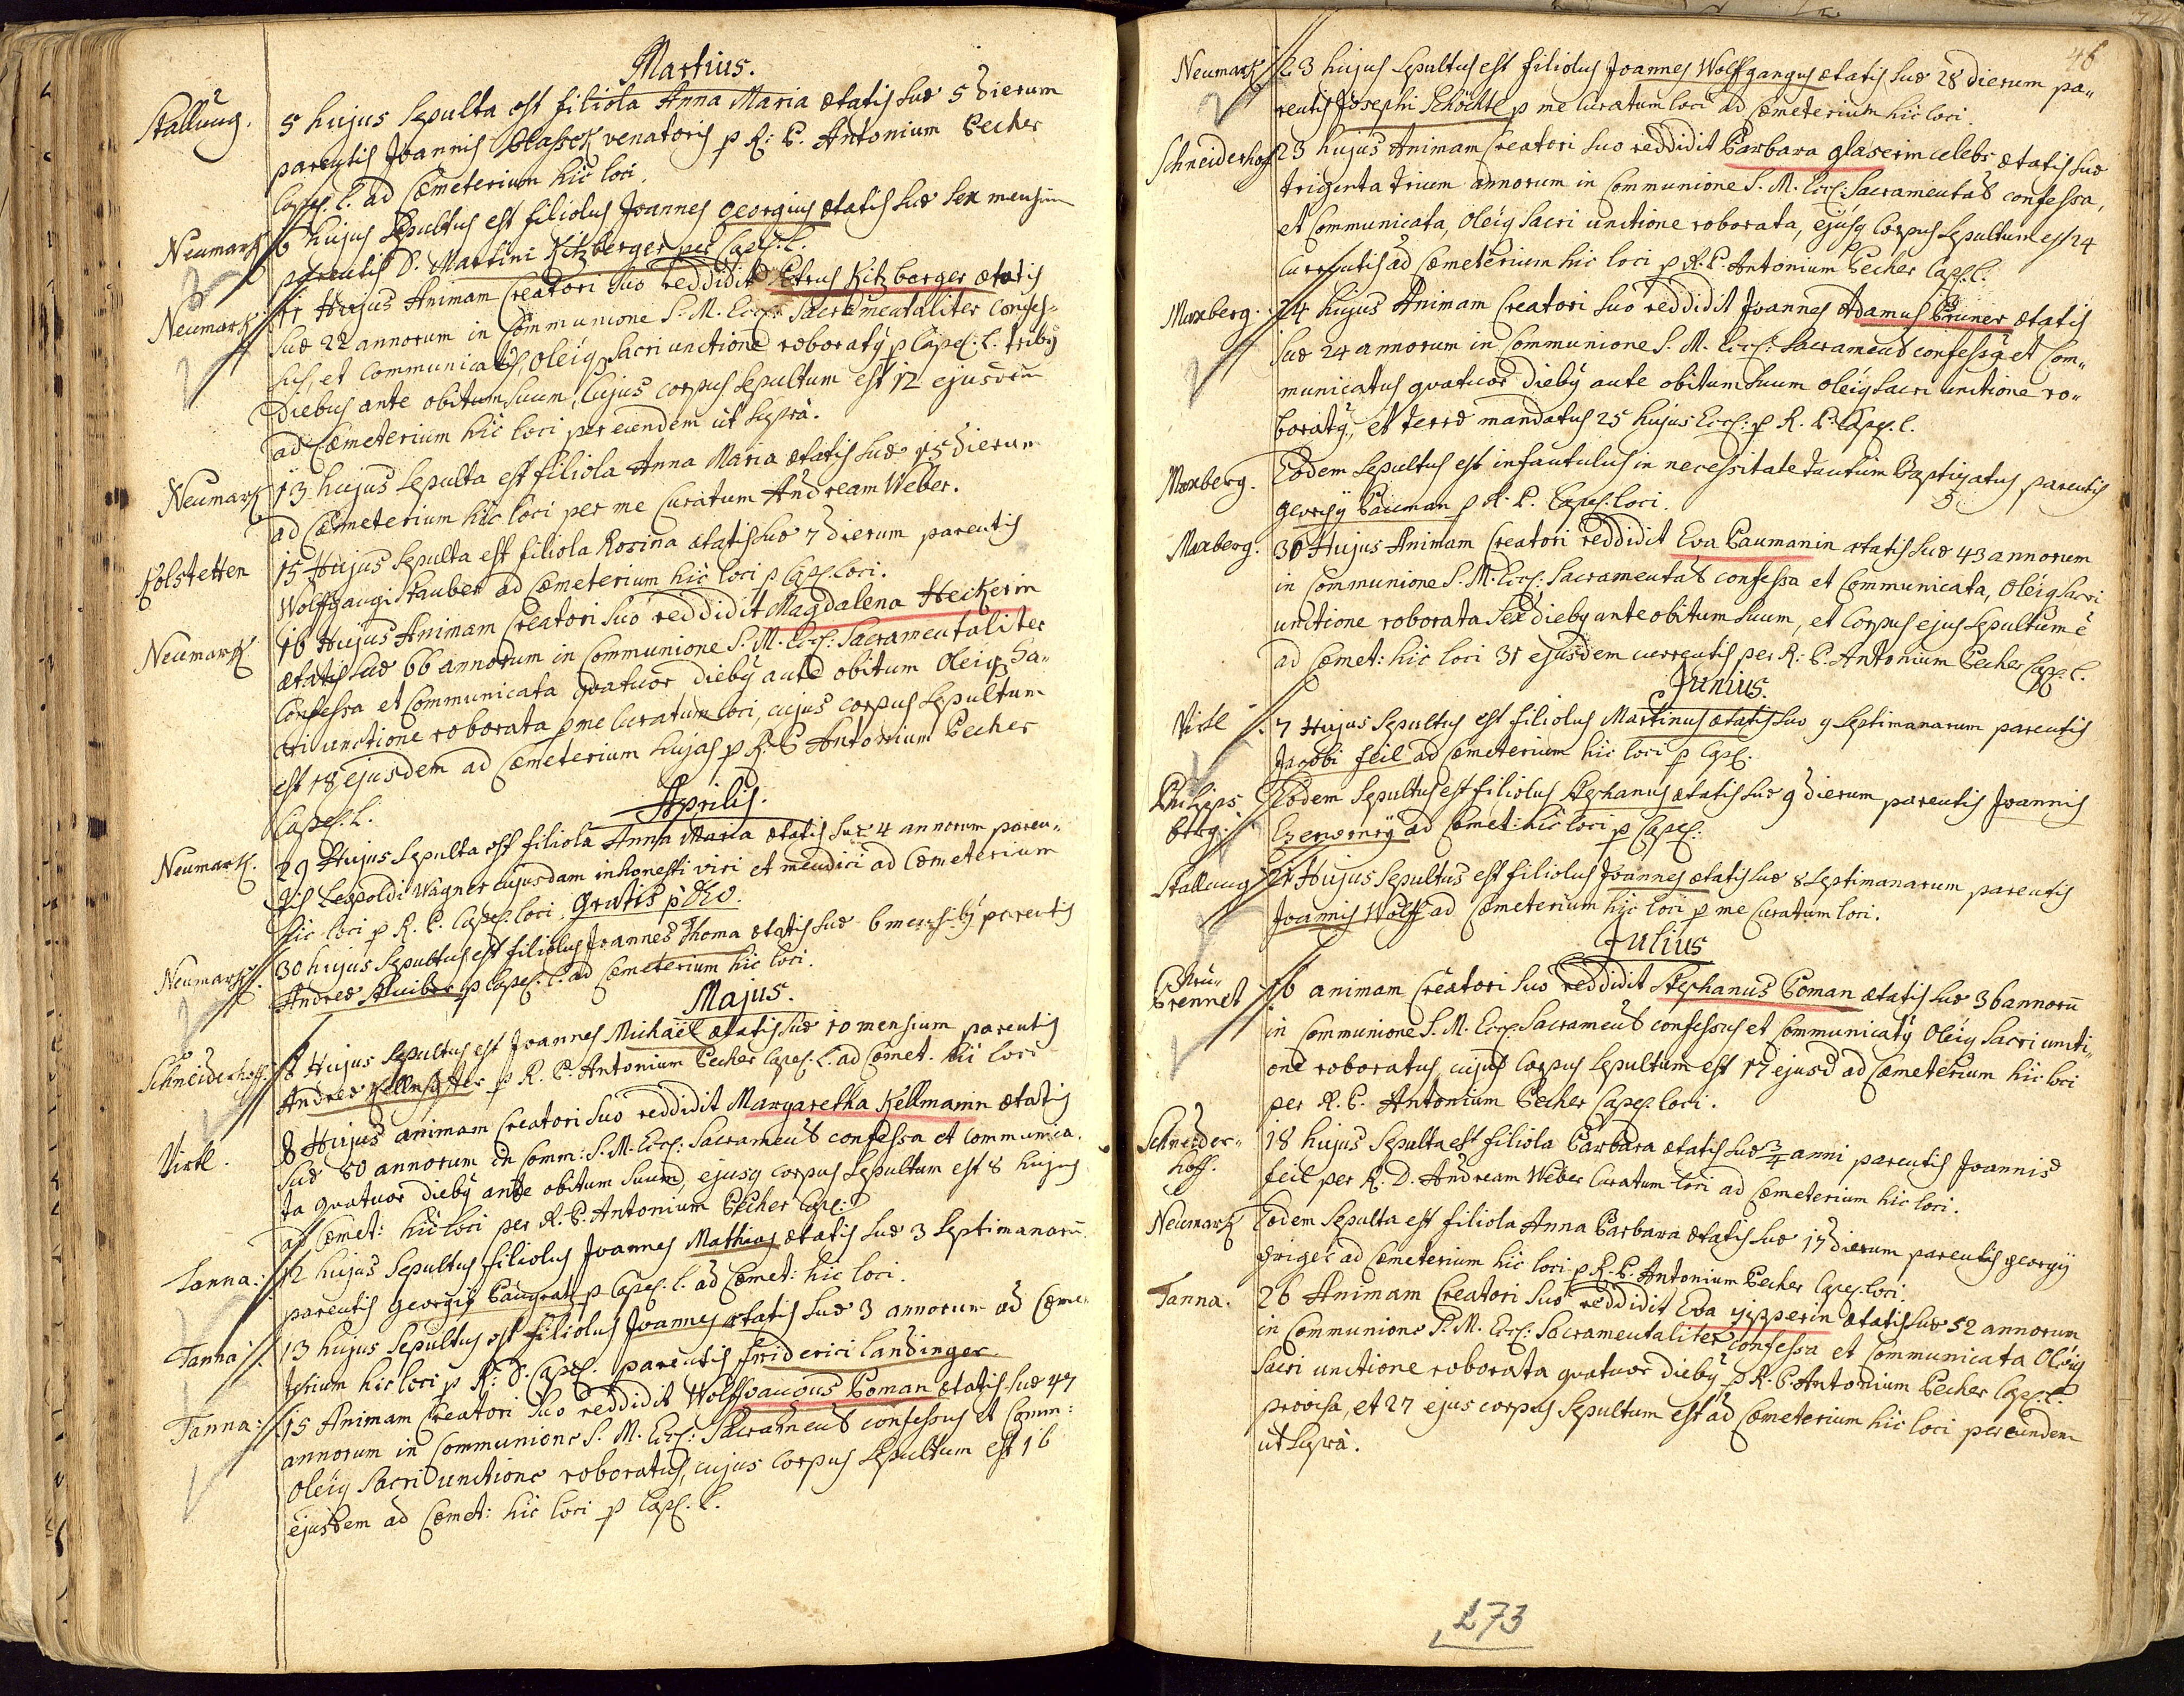 Martius.
Stallung. 5 hujus Sepulta est filiola Anna Maria ætatis suæ 5 dierum
parentis Joannis Blasek venatoris p R: P. Antonium Pecher
Capel. l. ad Cœmeterium hic loci.
Neumark 6 hujus Sepultus est filiolus Joannes Georgius ætatis suæ sex mensium
parentis D. Martini Kitzberger per Capel. l.
Neumark 11 Hujus Animam Creatori suo reddidit Petrus Kitzberger ætatis
suæ 22 annorum in Communione S. M. Eccl: Sacramentaliter confes-
sus, et Communicatus, oleiq Sacri unctione roboratq p Capel. l. tribq
diebus ante obitum suum, Cujus corpus Sepultum est 12 ejusdem
ad Cœmeterium hic loci per eundem ut supra.
Neumark 13 hujus Sepulta est filiola Anna Maria ætatis suæ 15 dierum
ad Cœmeterium hic loci per me Curatum Andream Weber.
Kolstetten 15 Hujus Sepulta est filiola Rosina ætatis suæ 7 dierum parentis
Wolffgangi Stauber ad Cœmeterium hic loci p Capel. loci.
Neumark 16 Hujus Animam Creatori suo reddidit Magdalena Heckerin
ætatis suæ 66 annorum in Communione S. M. Eccl: Sacramentaliter
Confessa et Communicata quatuor diebq ante obitum Oleiq Sa-
cri unctione roborata p me Curatum loci, cujus corpus Sepultum
est 18 ejusdem ad Cœmeterium hujas p R: P Antonium Pecher
Capel. l.
Aprilis.
Neumark. 29 Hujus Sepulta est filiola Anna Maria ætatis suæ 4 annorum paren-
tis Leopoldi Wagner cujusdam inhonesti viri et mendici ad Cœmeterium
hic loci p R. P. Capel. loci. Gratis p Deo.
Neumark 30 hujus Sepultus est filiolus Joannes Thoma ætatis suæ 6 mensibq parentis
Andreæ Stuiber p Capel. l. ad Cœmeterium hic loci.
Majus.
Schneiderhoff. 8 Hujus Sepultus est Joannes Michaël ætatis suæ 10 mensium parentis
Andreæ p R. P. Antonium Pecher Capel. l. ad Cœmet. hic loci
Virtl. 8 Hujus animam Creatori suo reddidit Margaretha Kellmanin ætatis
suæ 80 annorum in Comm: S. M. Eccl: Sacrament confessa et Communica-
ta quatuor diebq ante obitum suum, ejusq corpus Sepultum est 8 hujus
ad Cœmet: hic loci per R. P. Antonium Pecher Cape:
Tanna: 12 hujus Sepultus filiolus Joannes Mathias ætatis suæ 3 Septimanarū
parentis Georgij p Capel. l. ad Cœmet: hic loci.
Tanna 13 hujus Sepultus est filiolus Joannes ætatis suæ 3 annorum ad Cœme-
terium hic loci p R: D. Capel: parentis Friderici Landinger
Tanna: 15 Animam Creatori suo reddidit Wolffgangus Poman ætatis suæ 47
annorum in Communione S. M. Eccl: Sacrament confessus et Comm:
oleiq Sacri unctione roboratus, cujus corpus Sepultum est 16
ejusdem ad Cœmet: hic loci p Capel. l.
46
Neumark 23 hujus Sepultus est filiolus Joannes Wolffgangus ætatis suæ 28 dierum pa-
rentis Josephi Schöchtl p me Curatum loci ad Cœmeterium hic loci.
Schneiderhoff 23 hujus Animam Creatori suo reddidit Barbara Glaserin celebs ætatis suæ
triginta trium annorum in Communione S. M. Eccl: Sacramental confessa,
et Communicata, oleiq Sacri unctione roborata, ejusq corpus Sepultum est 24
currentis ad Cœmeterium hic loci p R. P. Antonium Pecher Cap. l.
Maxberg. 24 hujus Animam Creatori suo reddidit Joannes Adamus Pruner ætatis
suæ 24 annorum in Communione S. M. Eccl: Sacrament confessq et Com-
municatus quatuor diebq ante obitum suum oleiq sacri unctione ro-
boratq, et terræ mandatus 25 hujus Eccl: p R. P. Cape. l.
Maxberg. Eodem Sepultus est infantulus in necessitate tantum Baptizatus parentis
Georgij Pauman p R. P. Capel. loci.
Maxberg. 30 Hujus Animam Creatori reddidit Eva Paumanin ætatis suæ 43 annorum
in Communione S. M. Eccl: Sacramental confessa et Communicata, Oleiq Sacri
unctione roborata sex diebq ante obitum suum, et Corpus ejus Sepultum ē
ad Cœmet: hic loci 31 ejusdem currentis per R: P. Antonium Pecher Cap. l.
Junius.
Virtl 7 Hujus Sepultus est filiolus Martinus ætatis suæ 9 Septimanarum parentis
Jacobi Feil ad Cœmeterium hic loci p Capl.
Philips
berg. Eodem Sepultus est filiolus Stephanus ætatis suæ 9 dierum parentis Joannis
Czerwenÿ ad Cœmet: hic loci p Capel:
Stallung 21 Hujus Sepultus est filiolus Joannes ætatis suæ 8 Septimanarum parentis
Joannis Wolff ad Cœmeterium hic loci p me Curatum loci.
Julius
Brennet 16 animam Creatori suo reddidit Stephanus Poman ætatis suæ 36 annorū
in Communione S. M. Eccl. Sacrament confessus et Communicatq Oleiq Sacri uncti-
one roboratus, cujus Corpus Sepultum est 17 ejusd ad Cœmeterium hic loci
per R. P. Antonium Pecher Capel. loci.
Schneider-
hoff. 18 hujus Sepulta est filiola Barbara ætatis suæ 3/4 anni parentis Joannis
Feil per R. D. Andream Weber Curatum loci ad Cœmeterium hic loci.
Neumark Eodem Sepulta est filiola Anna Barbara ætatis suæ 17 dierum parentis Georgij
ad Cœmeterium hic loci p R. P. Antonium Pecher Capel. loci.
Tanna. 26 Animam Creatori suo reddidit Eva Zipperin ætatis suæ 52 annorum
in Communione S. M. Eccl: Sacramentaliter confessa et Communicata Oleiq
Sacri unctione roborata quatuor diebq p R. P. Antonium Pecher Cap. l.
provisa, et 27 ejus corpus Sepultum est ad Cœmeterium hic loci per eundem
ut supra.
173